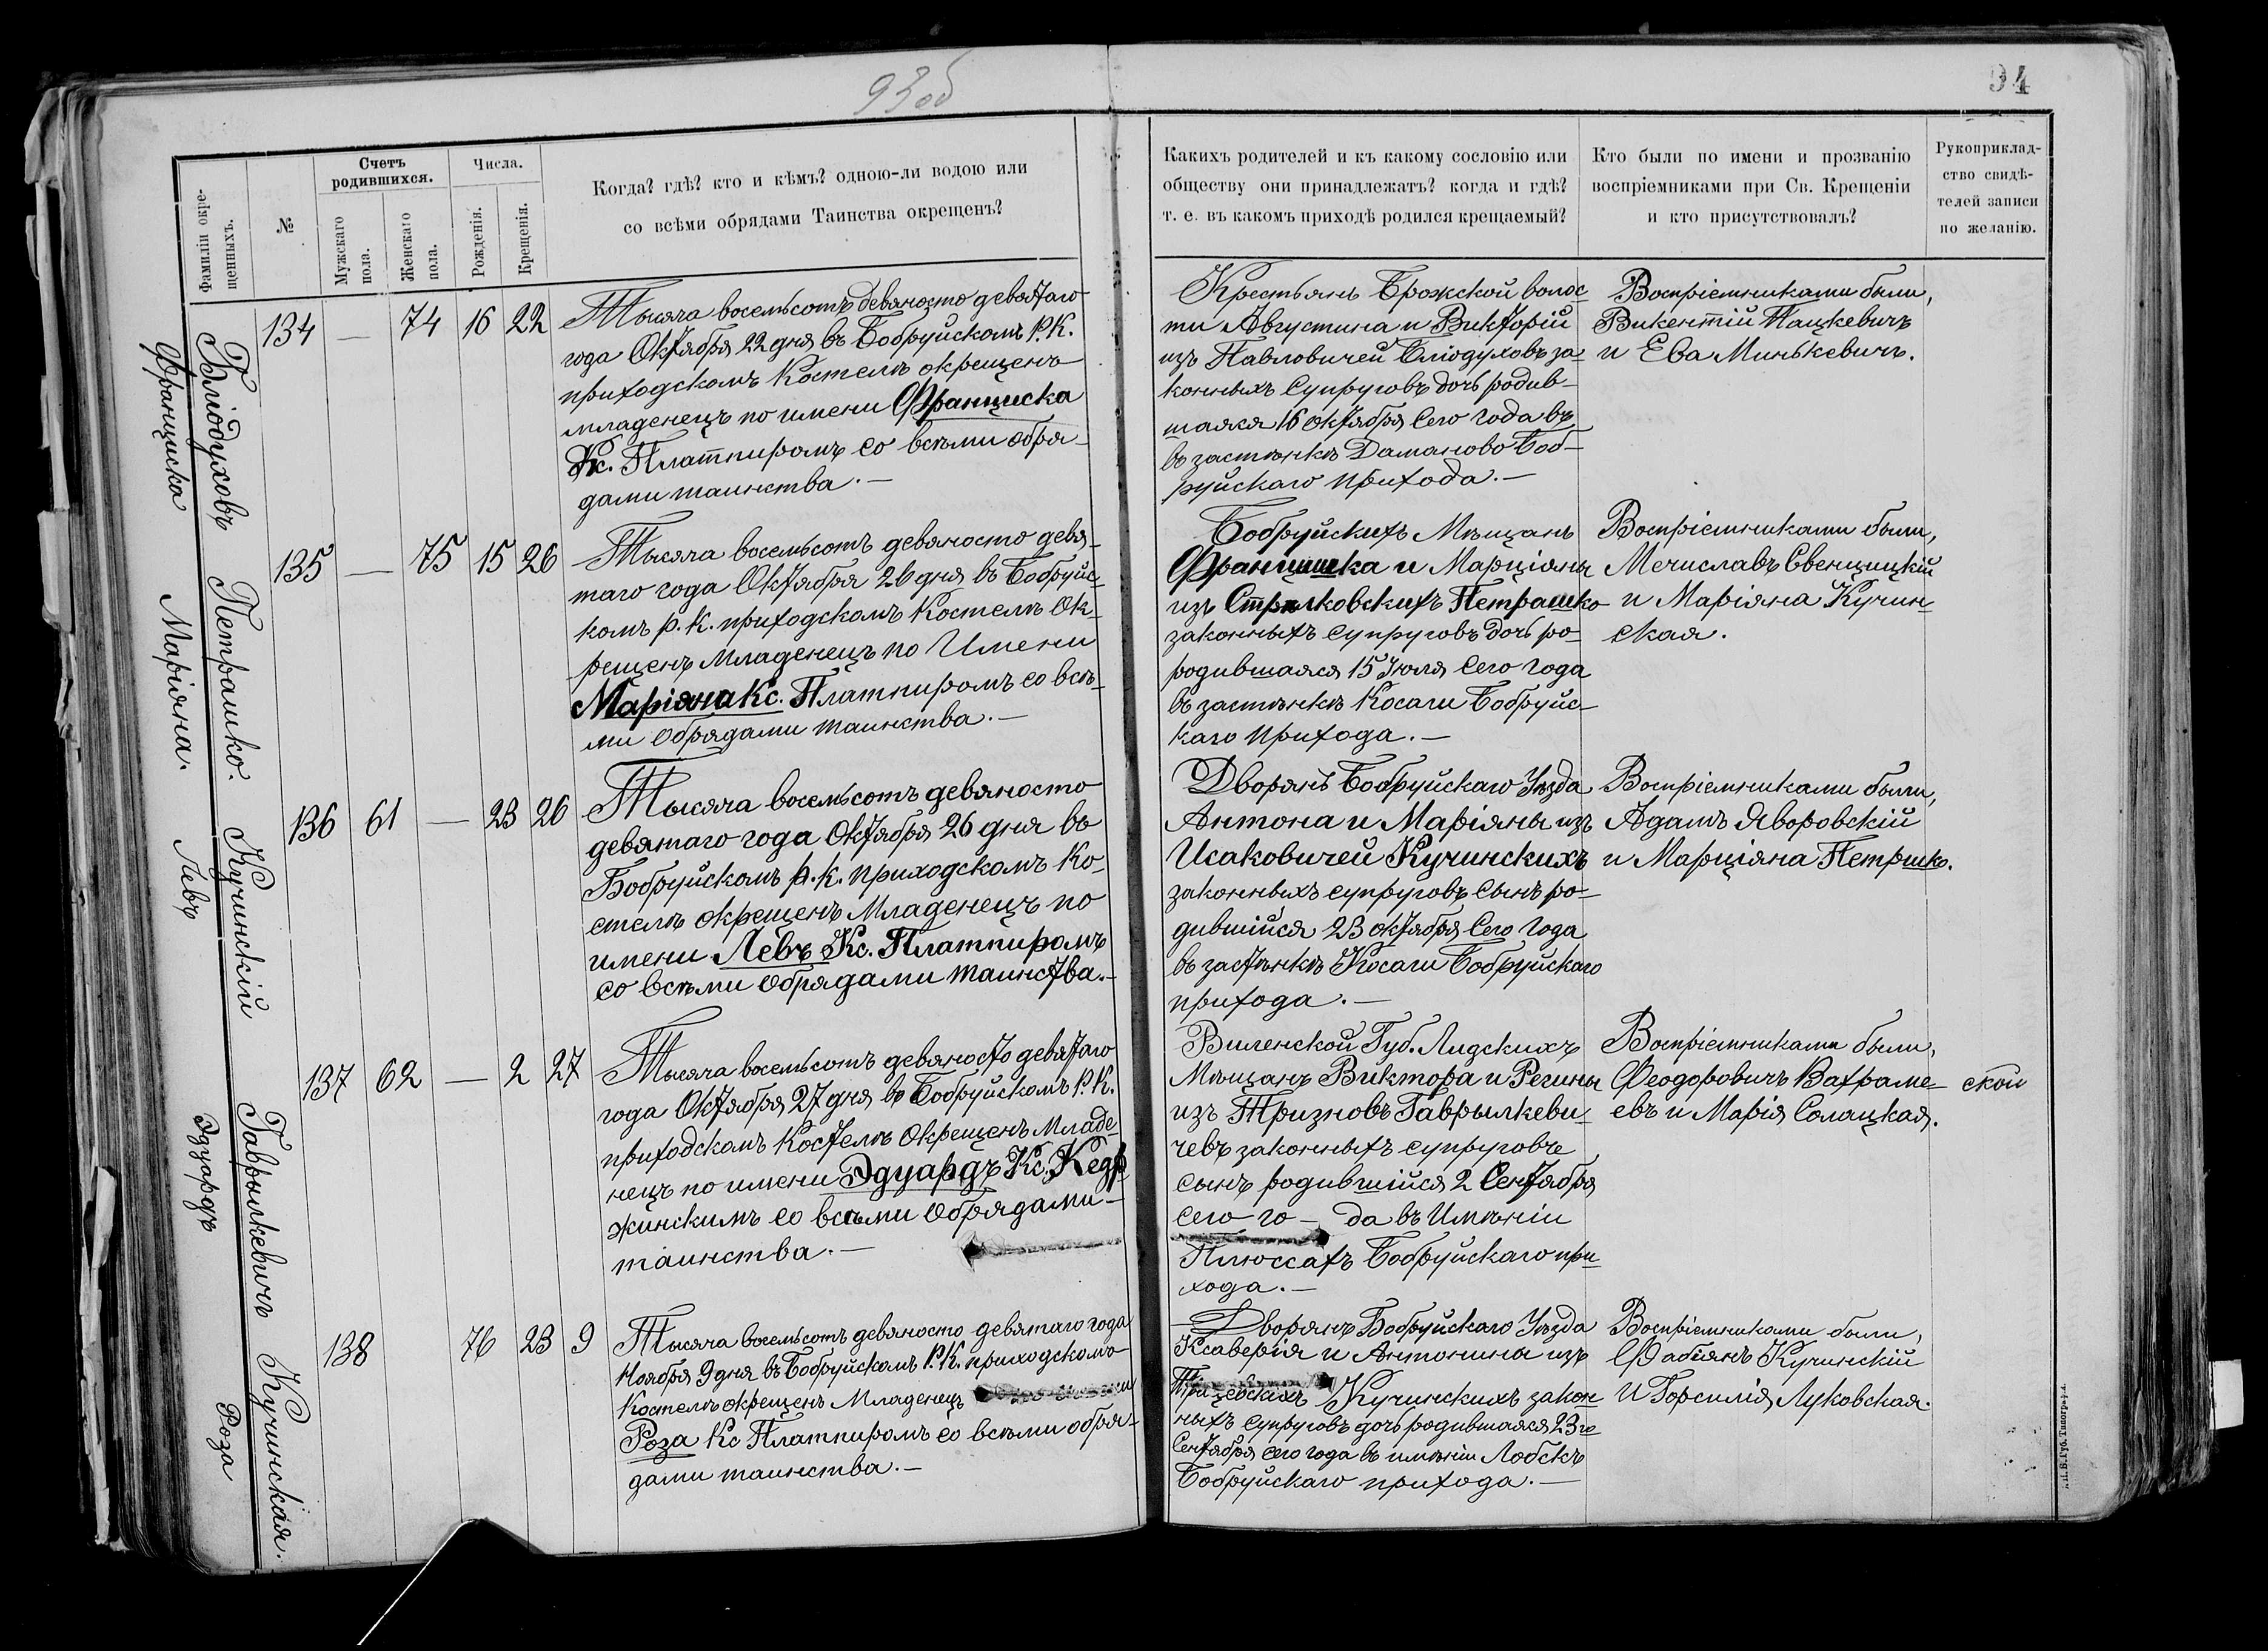 93 об
94
Фамиліи окре-
щенныхъ.
№
Счетъ
родившихся.
Мужскаго
пола.
Женскаго
пола.
Числа.
Рожденія.
Крещенія.
Когда? гдѣ? кто и кѣмъ? одною-ли водою или
со всѣми обрядами Таинства окрещенъ?
Какихъ родителей и къ какому сословію или
обществу они принадлежатъ? когда и гдѣ?
т. е. въ какомъ приходѣ родился крещаемый?
Кто были по имени и прозванію
воспріемниками при Св. Крещеніи
и кто присутствовалъ?
Рукоприклад-
ство свидѣ-
телей записи
по желанію.
Бліодуховъ
Франциска
134 — 74 16 22
Тысяча восемьсотъ девяносто девятаго
года Октября 22 дня въ Бобруйскомъ Р. К.
приходскомъ Костелѣ окрещенъ
младенецъ по имени Франциска
Кс. Платпиромъ со всѣми обря-
дами таинства. —
Крестьянъ Брожской волос-
ти Августина и Викторіи
изъ Павловичей Бліодуховъ за-
конныхъ супруговъ дочь родив-
шаяся 16 октября сего года въ
въ застѣнкѣ Даманово Боб-
руйскаго прихода. —
Воспріемниками были,
Викентій Пацкевичъ
и Ева Минькевичъ.
Петрашко.
Маріяна.
135 — 75 15 26
Тысяча восемьсотъ девяносто девя-
таго года Октября 26 дня въ Бобруйс-
комъ р. к. приходскомъ Костелѣ ок-
рещенъ младенецъ по имени
Маріяна Кс. Платпиромъ со всѣ-
ми обрядами таинства. —
Бобруйскихъ Мѣщанъ
Францишка и Марціяны
изъ Стрѣлковскихъ Петрашко
законныхъ супруговъ дочь ро-
родившаяся 15 Іюля сего года
въ застѣнкѣ Косаги Бобруйс-
каго прихода. —
Воспріемниками были,
Мечиславъ Свенцицкій
и Маріяна Кучин-
ская.
Кучинскій
Левъ
136 61 — 23 26
Тысяча восемьсотъ девяносто
девятаго года Октября 26 дня въ
Бобруйскомъ р. к. приходскомъ Ко-
стелѣ окрещенъ Младенецъ по
имени Левъ Кс. Платпиромъ
со всѣми обрядами таинства. —
Дворянъ Бобруйскаго Уѣзда
Антона и Маріяны изъ
Исаковичей Кучинскихъ
законныхъ супруговъ сынъ ро-
дившійся 23 октября сего года
въ застѣнкѣ Косаги Бобруйскаго
прихода. —
Воспріемниками были,
Адамъ Яворовскій
и Марціяна Петршко.
Гаврылкевичъ
Эдуардъ
137 62 — 2 27
Тысяча восемьсотъ девяносто девятаго
года Октября 27 дня въ Бобруйскомъ Р. К.
приходскомъ Костелѣ окрещенъ Младе-
нецъ по имени Эдуардъ Кс. Кедр-
жинскимъ со всѣми обрядами —
таинства. —
Виленской Губ. Лидскихъ
Мѣщанъ Виктора и Регины
изъ Тризновъ Гаврылкеви-
чевъ законныхъ супруговъ
сынъ родившійся 2 Сентября
сего го- да въ Имѣніи
Плюссахъ Бобруйскаго при-
хода. —
Воспріемниками были,
Феодоровичъ Вахраме-
евъ и Марія Солацкая.
ской
Кучинская.
Роза
138 76 23 9
Тысяча восемьсотъ девяносто девятаго года
Ноября 9 дня въ Бобруйскомъ Р. К. приходскомъ
Костелѣ окрещенъ Младенецъ
Роза Кс Платпиромъ со всѣми обря-
дами таинства. —
Дворянъ Бобруйскаго Уѣзда
Ксаверія и Антонины изъ
Кучинскихъ закон-
ныхъ супруговъ дочь родившаяся 23 го
Сентября сего года въ имѣніи Лобскъ
Бобруйскаго прихода. —
Воспріемниками были,
Фабіянъ Кучинскій
и Торсилія Луковская.